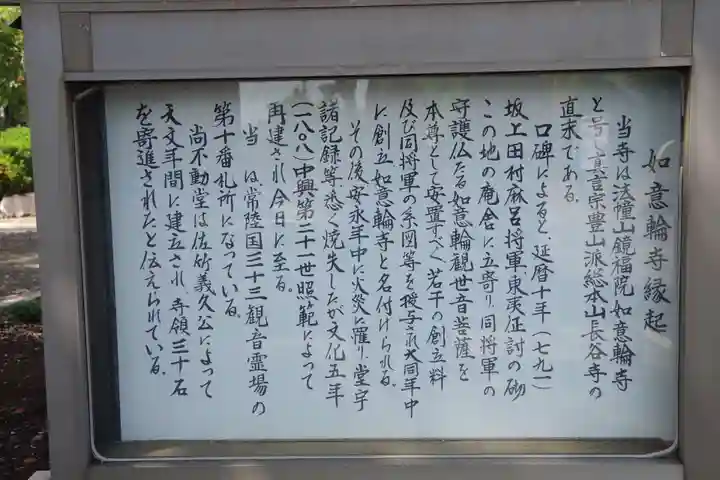 如意輪寺縁起
当寺は法幢山鏡福院如意輪寺
と号し真言宗豊山派総本山長谷寺の
直末である。
口碑によると延暦十年(七九一)
坂上田村麻呂将軍、東夷征討の砌
この地の庵舎に立寄り同将軍の
守護仏たる如意輪観世音菩薩を
本尊として安置すべく若干の創立料
及び同将軍の系図等を授与され大同年中
に創立如意輪寺と名付けられる。
その後安永年中に火災に罹り堂宇
諸記録等悉く焼失したが文化五年
(一八〇八)中興第二十一世照範によって
再建され今日に至る。
当 は常陸国三十三観音霊場の
第十番札所になっている。
尚不動堂は佐竹義久公によって
天文年間に建立され寺領三十石
を寄進されたと伝えられている。